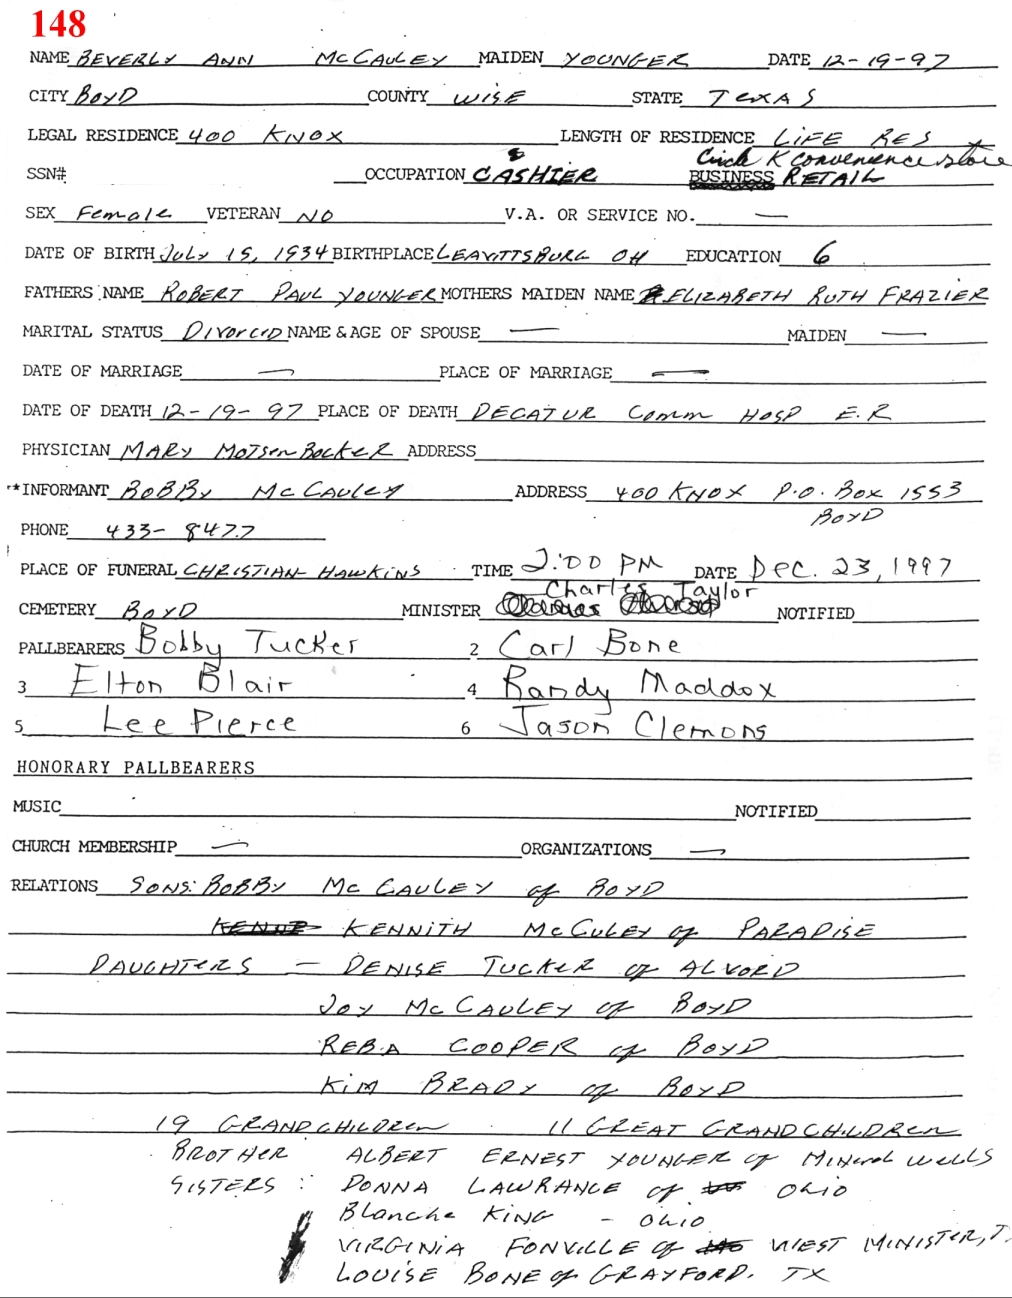 148
NAME BEVERLY ANN McCAULEY MAIDEN YOUNGER DATE 12-19-97
CITY BOYD COUNTY WISE STATE TEXAS
LEGAL RESIDENCE 400 KNOX LENGTH OF RESIDENCE LIFE RES
Circle K convenience store
SSN# OCCUPATION CASHIER BUSINESS RETAIL
SEX Female VETERAN NO V.A. OR SERVICE NO. —
DATE OF BIRTH July 15, 1934 BIRTHPLACE LEAVITTSBURG OH EDUCATION 6
FATHERS NAME ROBERT PAUL YOUNGER MOTHERS MAIDEN NAME ELIZABETH RUTH FRAZIER
MARITAL STATUS Divorced NAME & AGE OF SPOUSE — MAIDEN —
DATE OF MARRIAGE — PLACE OF MARRIAGE —
DATE OF DEATH 12-19-97 PLACE OF DEATH DECATUR Comm HOSP E.R
PHYSICIAN MARY MOTSENBOCKER ADDRESS
*INFORMANT BOBBY McCAULEY ADDRESS 400 KNOX P.O. BOX 1553
BOYD
PHONE 433-8477
PLACE OF FUNERAL CHRISTIAN-HAWKINS TIME 2:00 PM DATE Dec. 23, 1997
Charles Taylor
CEMETERY BOYD MINISTER NOTIFIED
PALLBEARERS Bobby Tucker 2 Carl Bone
3 Elton Blair 4 Randy Maddox
5 Lee Pierce 6 Jason Clemons
HONORARY PALLBEARERS
MUSIC NOTIFIED
CHURCH MEMBERSHIP — ORGANIZATIONS —
RELATIONS SONS: BOBBY McCAULEY of BOYD
KENNITH McCULEY of PARADISE
DAUGHTERS — DENISE TUCKER of ALVORD
JOY McCAULEY of BOYD
REBA COOPER of BOYD
KIM BRADY of BOYD
19 GRANDCHILDREN 11 GREAT GRANDCHILDREN
BROTHER ALBERT ERNEST YOUNGER of Mineral Wells
SISTERS: DONNA LAWRANCE of OHIO
Blanche KING - OHIO
VIRGINIA FONVILLE of WEST MINISTER, T.
LOUISE BONE of GRAYFORD. TX